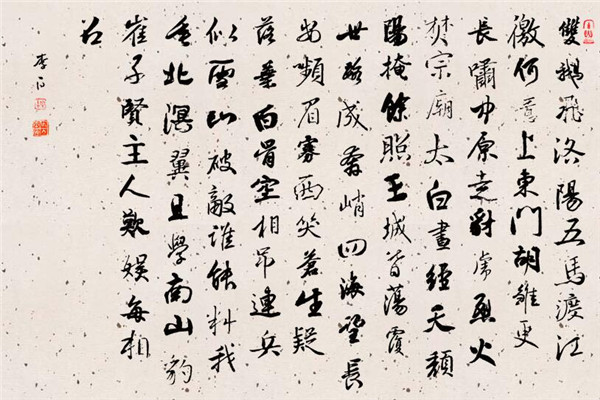 雙鵝飛洛陽五馬渡江
徼何意上東門胡雛更
長嘯中原走豺虎烈火
焚宗廟太白晝經天頹
陽掩餘照王城皆蕩覆
世路成奔峭四海望長
安嚬眉寡西笑蒼生疑
落葉白骨空相吊連兵
似雪山破敵誰能料我
垂北溟翼且學南山豹
崔子賢主人歡娛每相
召
李白